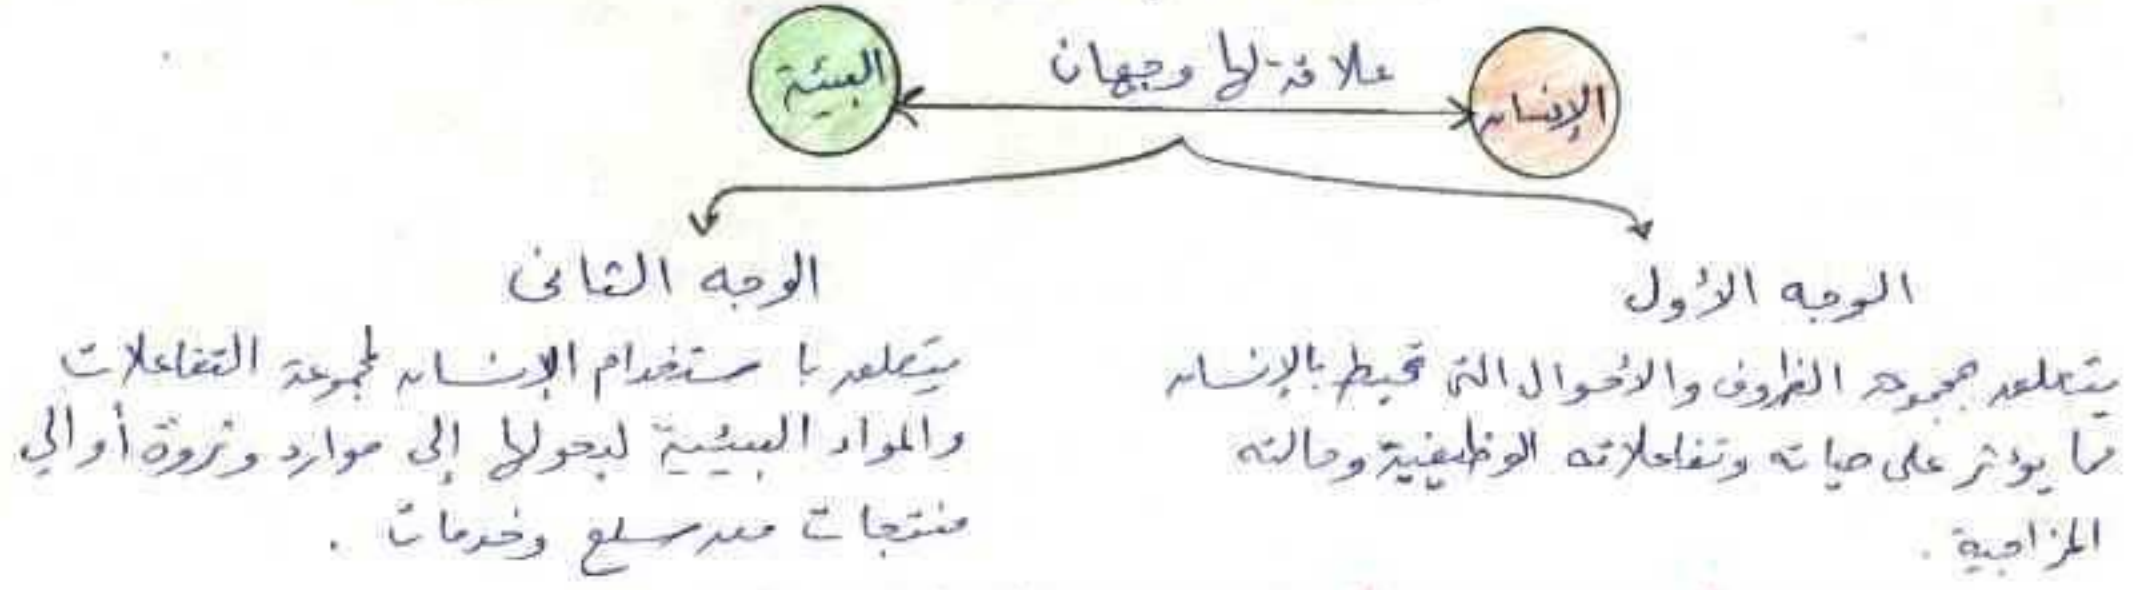 علاقة لها وجهان
الإنسان
البيئة
الوجه الأول
يتعلق بمجموعة الظروف والأحوال التى تحيط بالإنسان
مما يؤثر على حياته وتفاعلاته الوظيفية وحالته
المزاجية .
الوجه الثانى
يتعلق باستخدام الإنسان لمجموعة التفاعلات
والمواد البيئية ليحولها إلى موارد وثروة أو إلي
منتجات من سلع وخدمات .